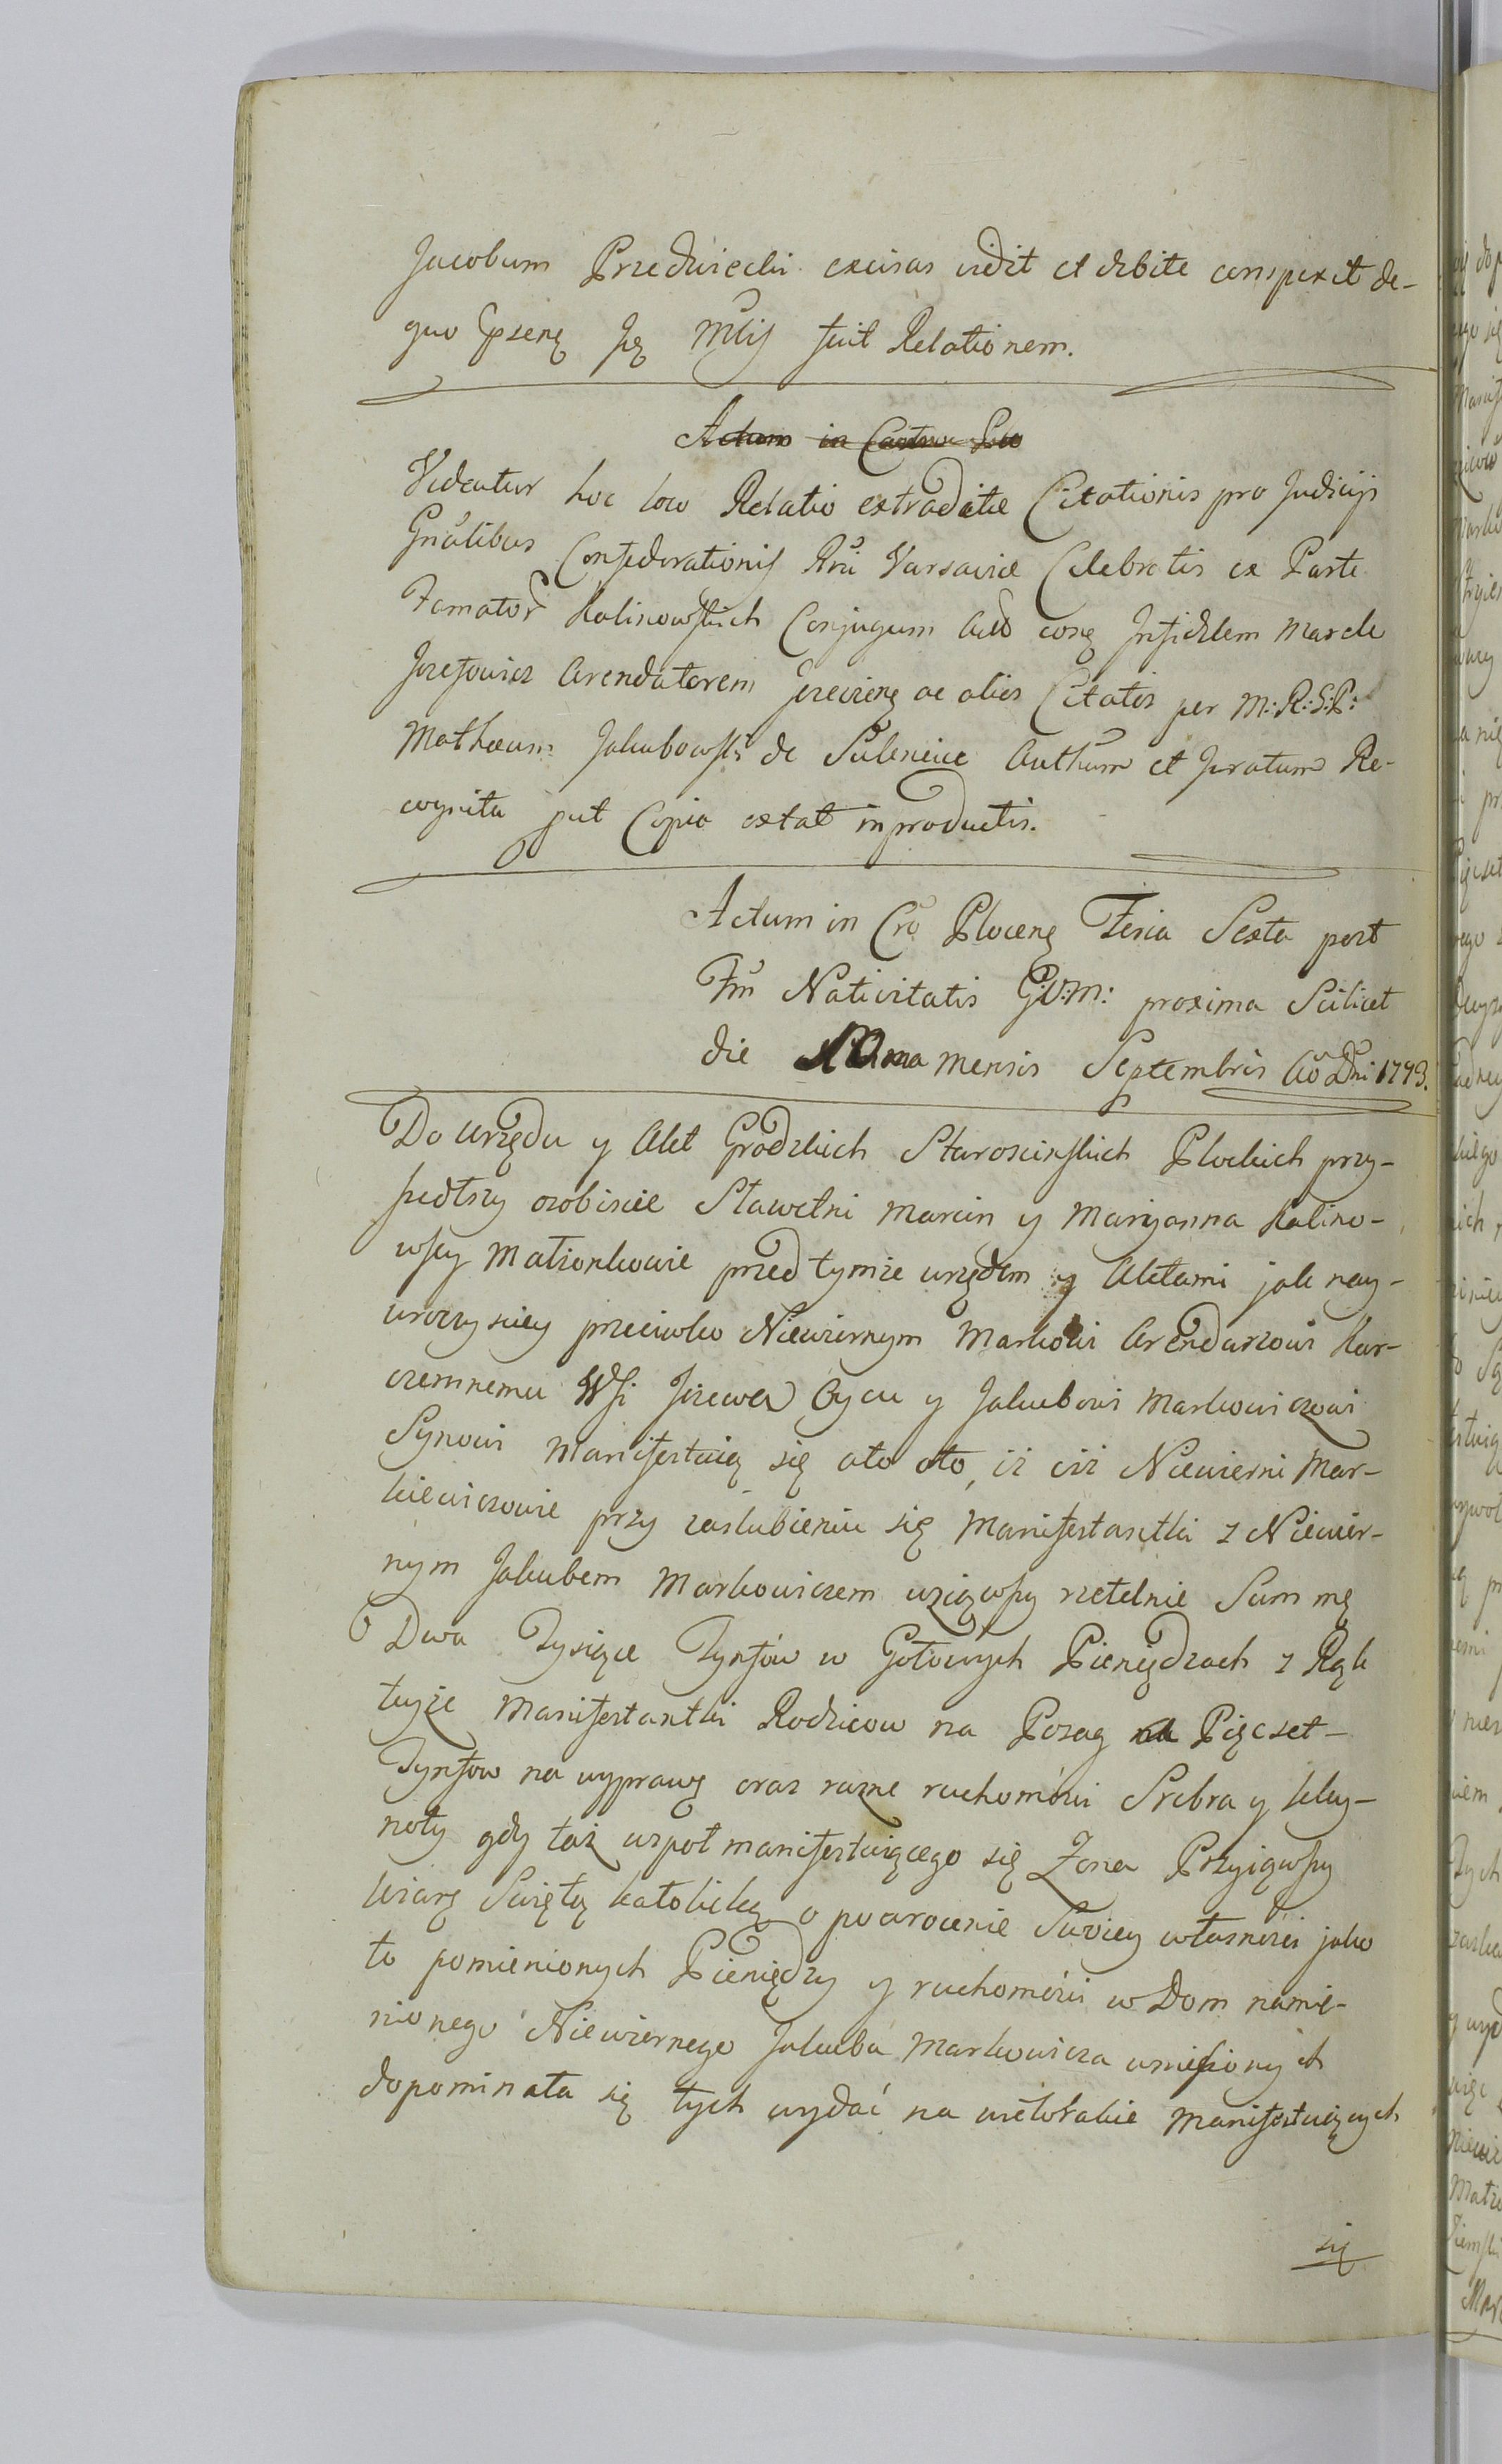 Jacobum Przedwiecki excisas vidit et debite conspexit de-
quo Ipsenę Ję Mtij fuit Relationem.
Actum in Castro
Videatur hoc loco Relatio extraditæ Citationis pro Judicijs
Gnâlibus Confederationis Rni Varsaviæ Celebratis ex Parte
Famatoř Kalinowskich Conjugum con\ Infidelem Marek
Jozefowicz Arendatorem ac alios Citatos per M: R: S: P:
Matheum Jakubowski de Sulenice Authum et Juratum Re-
cognita put Copia extat in productis.
Actum in Crō Plocenę Feria Sexta post
Fm Nativitatis B:V:M: proxima Scilicet
die mensis Septembris Aō Dni 1793.
Do Urzędu y Akt Grodzkich Starościnskich Płockich przy-
szedłszy osobiscie Sławetni Marcin y Maryanna Kalino-
wscy Małzonkowie przed tymże urzędem y Aktami jak nay-
uroczysciey przeciwko Niewiernym Markowi Arendarzowi Kar-
czemnemu Wsi Jżewa Oycu y Jakubowi Markowiczowi
Synowi Manifestuią się o to oto, iż ciż Niewierni Mar-
kiewiczowie przy zaslubieniu się Manifestantki z Niewier-
nym Jakubem Markowiczem wziąwszy rzetelnie Summę
Dwa Tysiące Tynfów w Gotowych Pieniędzach z Rąk
teyże Manifestantki Rodzicow na Posag Pięcset-
Tynfow na wyprawę oraz rozne ruchomości Srebra y kley-
noty gdy taż wspoł manifestuiącego się Zona Przyiąwszy
Wiarę Swiętą katolicką o powrocenie Swoiey własności jako
to pomienionych Pieniędzy y ruchomości w Dom namie-
nionego Niewiernego Jakuba Markowicza wniesionych
dopominała się tych wydać na wielokakie Manifestuiących
się